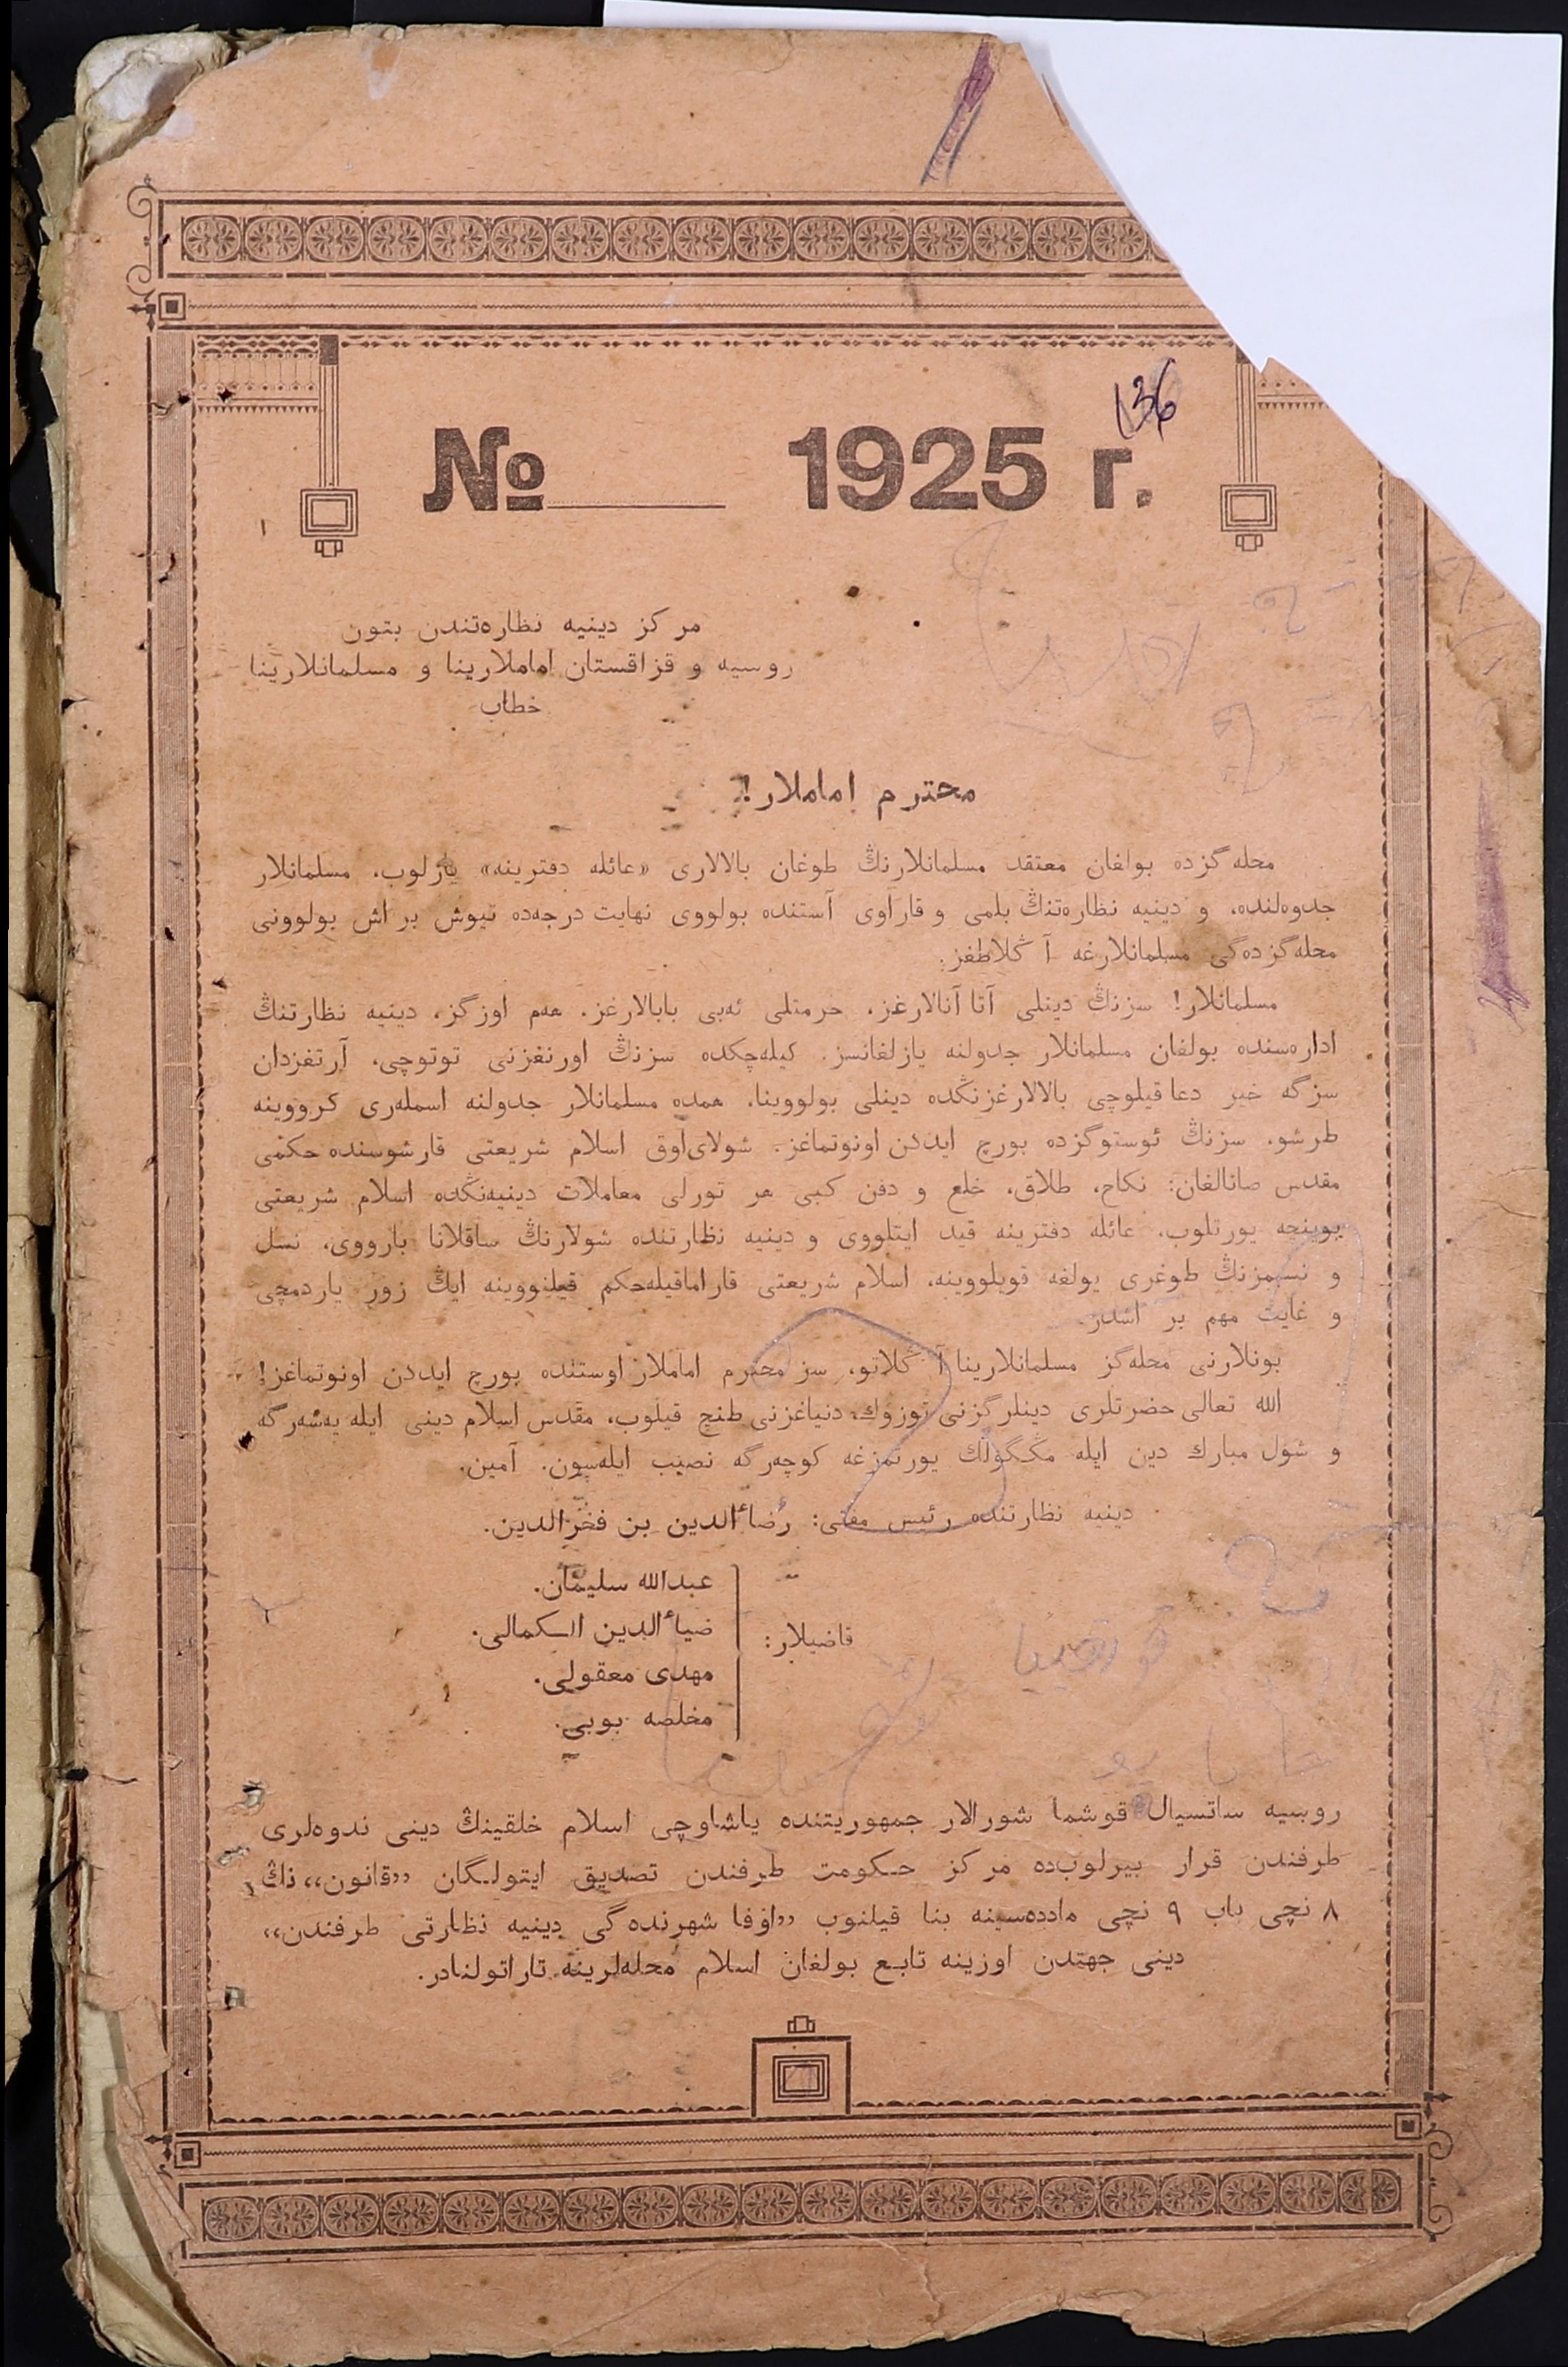 136
№ 1925 г.
مركز دينيه نظارەتندن بتون
روسيه و قزاقستان اماملارينا و مسلمانلارينا
خطاب
محترم اماملار!
محله گزده بولغان معتقد مسلمانلارنڭ طوغان بالالاری «عائله دفترينه» يازلوب، مسلمانلار
جدوەلنده، و دينيه نظارەتنڭ بلمی و قاراوی آستنده بولووی نهايت درجەده تيوش بر اش بولوونی
محله گزدەگی مسلمانلارغه آڭلاطغز:
مسلمانلار! سزنڭ دينلی آتا آنالارغز، حرمتلی ئەبی بابالارغز. هەم اوزگز، دينيه نظارتنڭ
ادارەسنده بولغان مسلمانلار جدولنه يازلغانسز. كيلەچكده سزنڭ اورنغزنی توتوچی، آرتغزدان
سزگه خير دعا قيلوچی بالالارغزنڭده دينلی بولووينا. همده مسلمانلار جدولنه اسملەری كرووينه
طرشو. سزنڭ ئوستوگزده بورچ ايدەن اونوتماغز. شولای‌اوق اسلام شريعتی قارشوسنده حكمی
مقدس صانالغان: نكاح، طلاق، خلع و دفن كبی هر تورلی معاملات دينيەنڭده اسلام شريعتی
بوينچه يورتلوب، عائله دفترينه قيد ايتلووی و دينيه نظارتنده شولارنڭ ساقلانا بارووی، نسل
و نسبمزنڭ طوغری يولغه قويلووينه، اسلام شريعتی قاراماقيله‌حكم قيلنووينه ايڭ زور ياردمچی
و غايت مهم بر اشدر.
بونلارنی محله‌گز مسلمانلارينا آڭلاتو، سز محترم اماملار اوستنده بورچ ايدەن اونوتماغز!
الله تعالی حضرتلری دينلرگزنی توزوك، دنياغزنی طنچ قيلوب، مقدس اسلام دينی ايله يەشەرگه
و شول مبارك دين ايله مڭگولك يورتمزغه كوچەرگه نصيب ايلەسون. آمين.
دينيه نظارتنده رئيس مفتی: رضاءالدين بن فخرالدين.
عبدالله سليمان.
قاضيلار: ضياءالدين الكمالی.
مهدی معقولی.
مخلصه بوبی.
روسيه ساتسيال قوشما شورالار جمهوريتنده ياشاوچی اسلام خلقينڭ دينی ندوەلری
طرفندن قرار بيرلوب‌ده مركز حكومت طرفندن تصديق ايتولگان „قانون“نڭ
٨ نچی باب ٩ نچی مادەەسينه بنا قيلنوب „اوفا شهرنده‌گی دينيه نظارتی طرفندن“
دينی جهتدن اوزينه تابع بولغان اسلام محله‌لرينه تاراتولنادر.